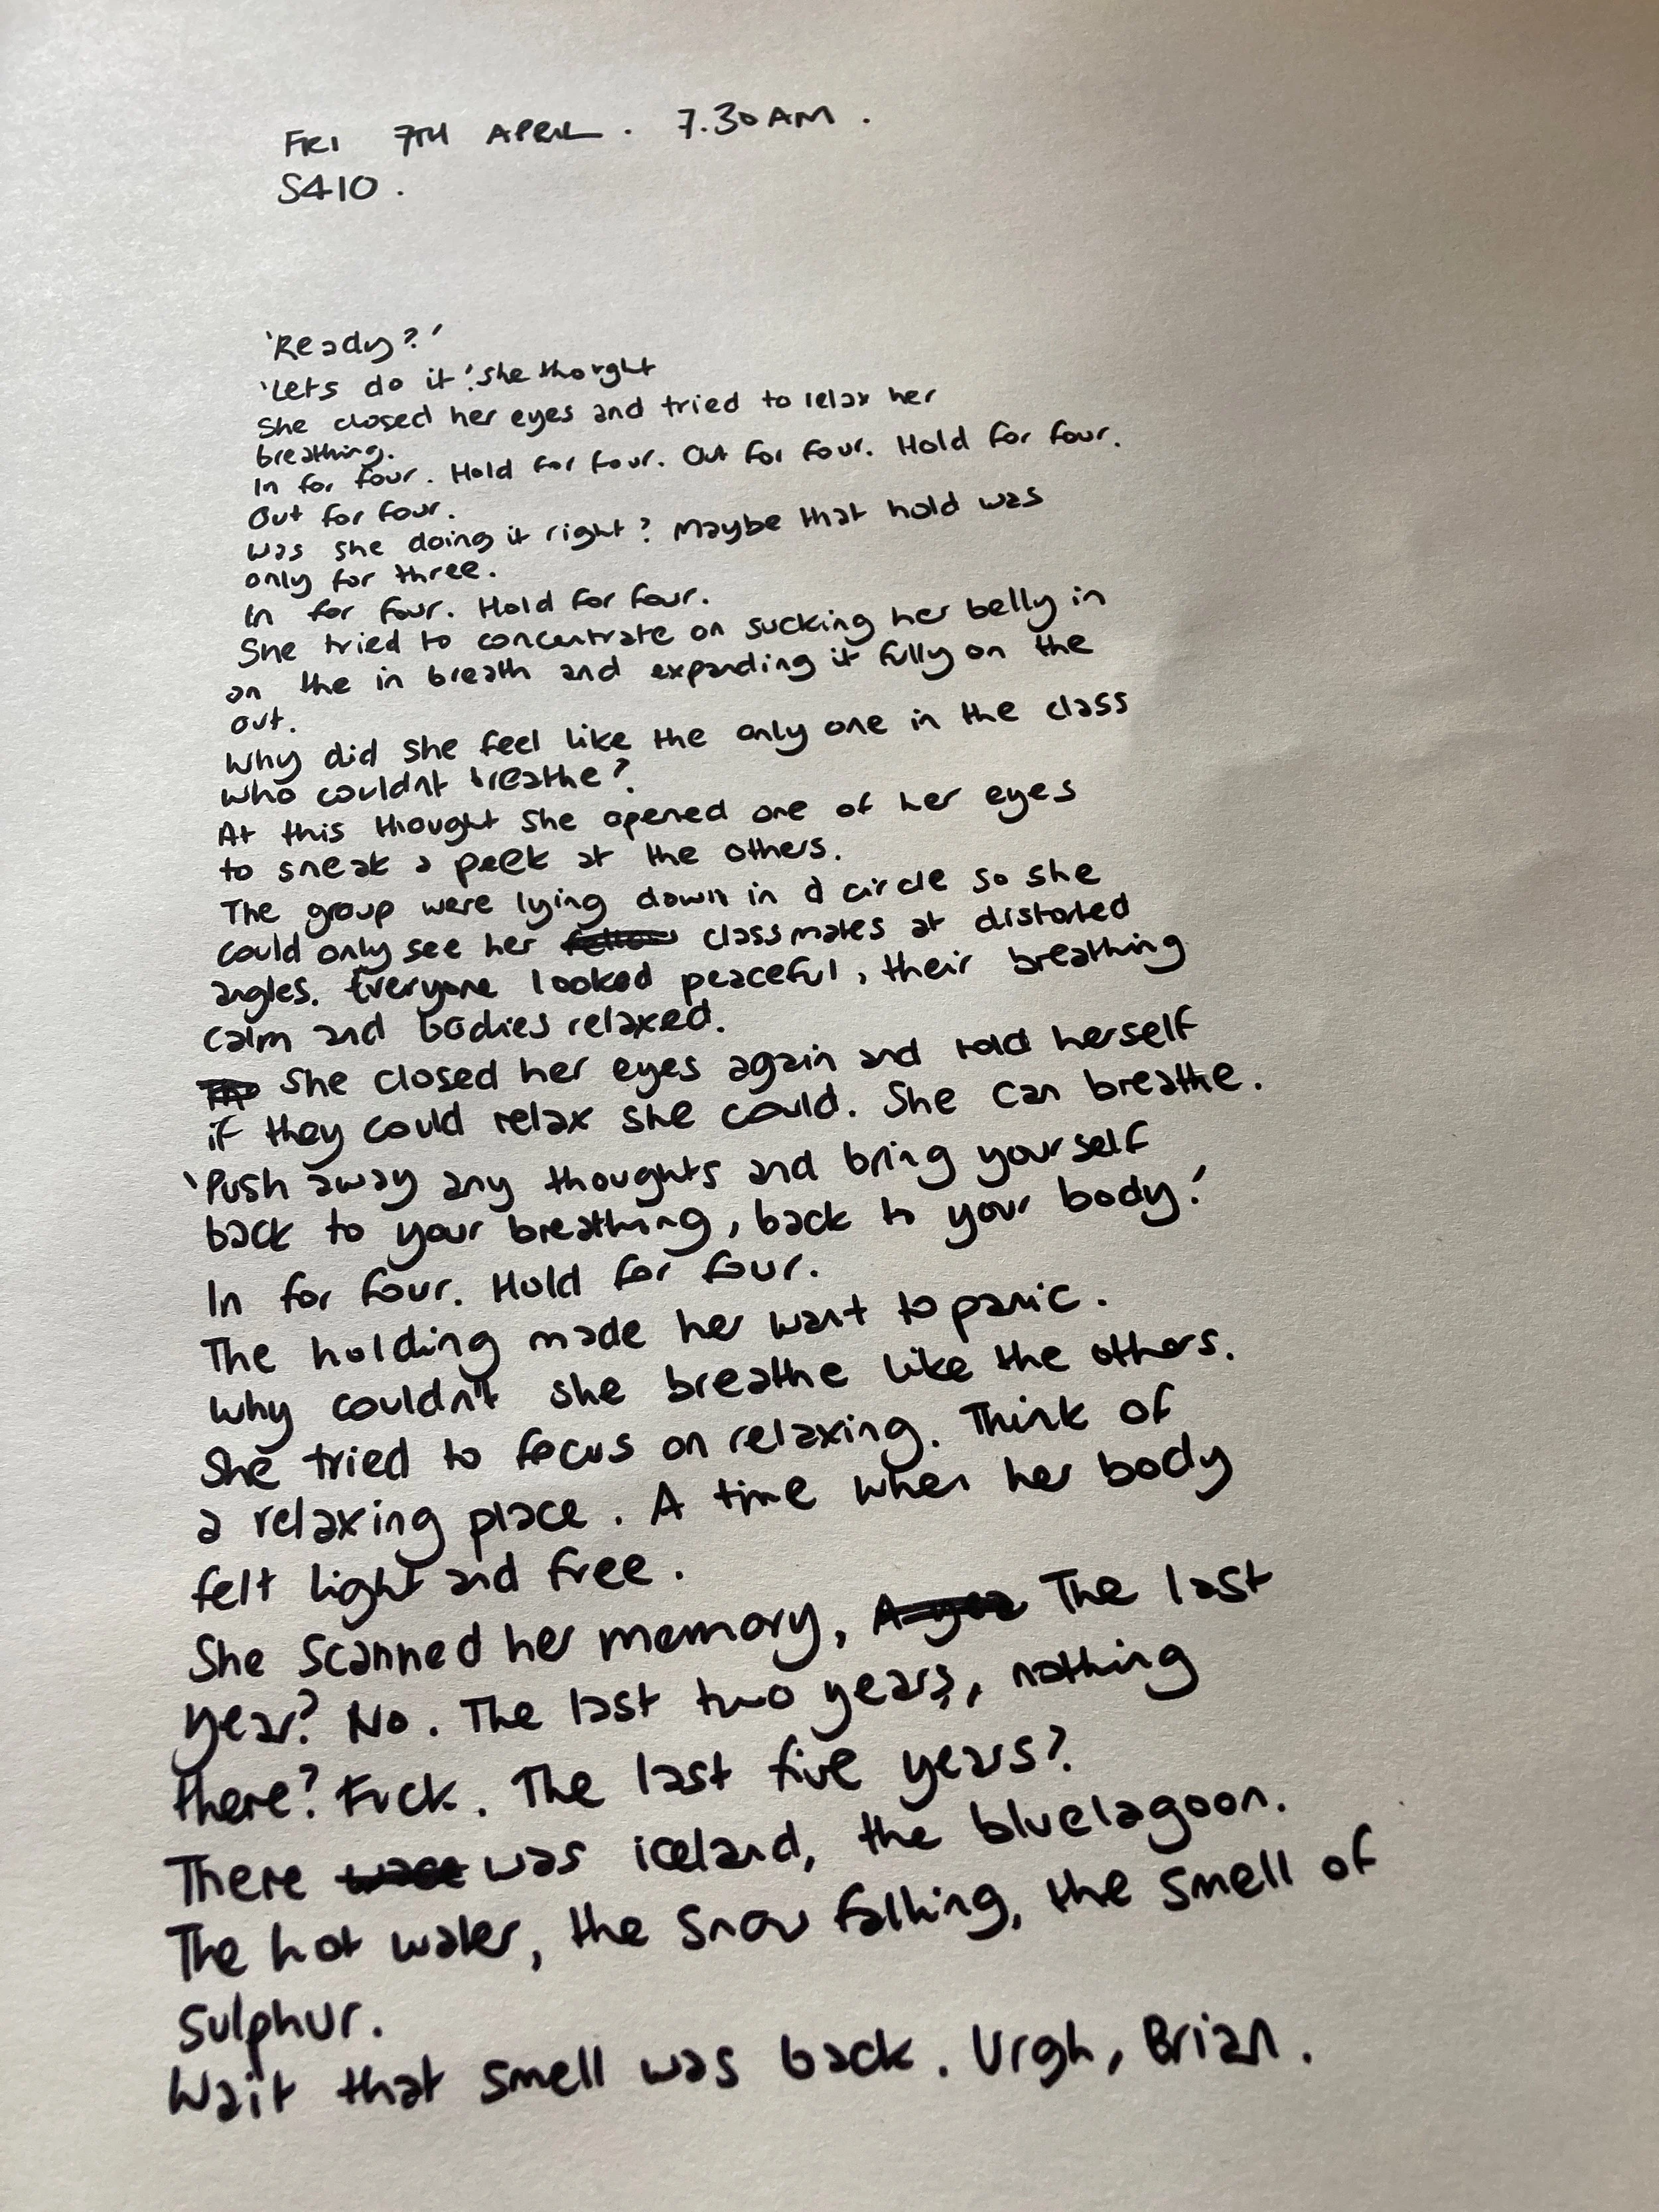 FRI 7TH APRIL. 7.30AM.
S410.
'Ready?'
'Lets do it.' she thought
She closed her eyes and tried to relax her
breathing.
In for four. Hold for four. Out for four. Hold for four.
Out for four.
Was she doing it right? Maybe that hold was
only for three.
In for four. Hold for four.
She tried to concentrate on sucking her belly in
on the in breath and expanding it fully on the
out.
Why did she feel like the only one in the class
who couldnt breathe?
At this thought she opened one of her eyes
to sneak a peek at the others.
The group were lying down in a circle so she
could only see her classmates at distorted
angles. Everyone looked peaceful, their breathing
calm and bodies relaxed.
She closed her eyes again and told herself
if they could relax she could. She can breathe.
'Push away any thoughts and bring yourself
back to your breathing, back to your body.'
In for four. Hold for four.
The holding made her want to panic.
Why couldn't she breathe like the others.
She tried to focus on relaxing. Think of
a relaxing place. A time when her body
felt light and free.
She scanned her memory, The last
year? No. The last two years, nothing
there? Fuck. The last five years?
There was iceland, the bluelagoon.
The hot water, the snow falling, the smell of
sulphur.
Wait that smell was back. Urgh, Brian.